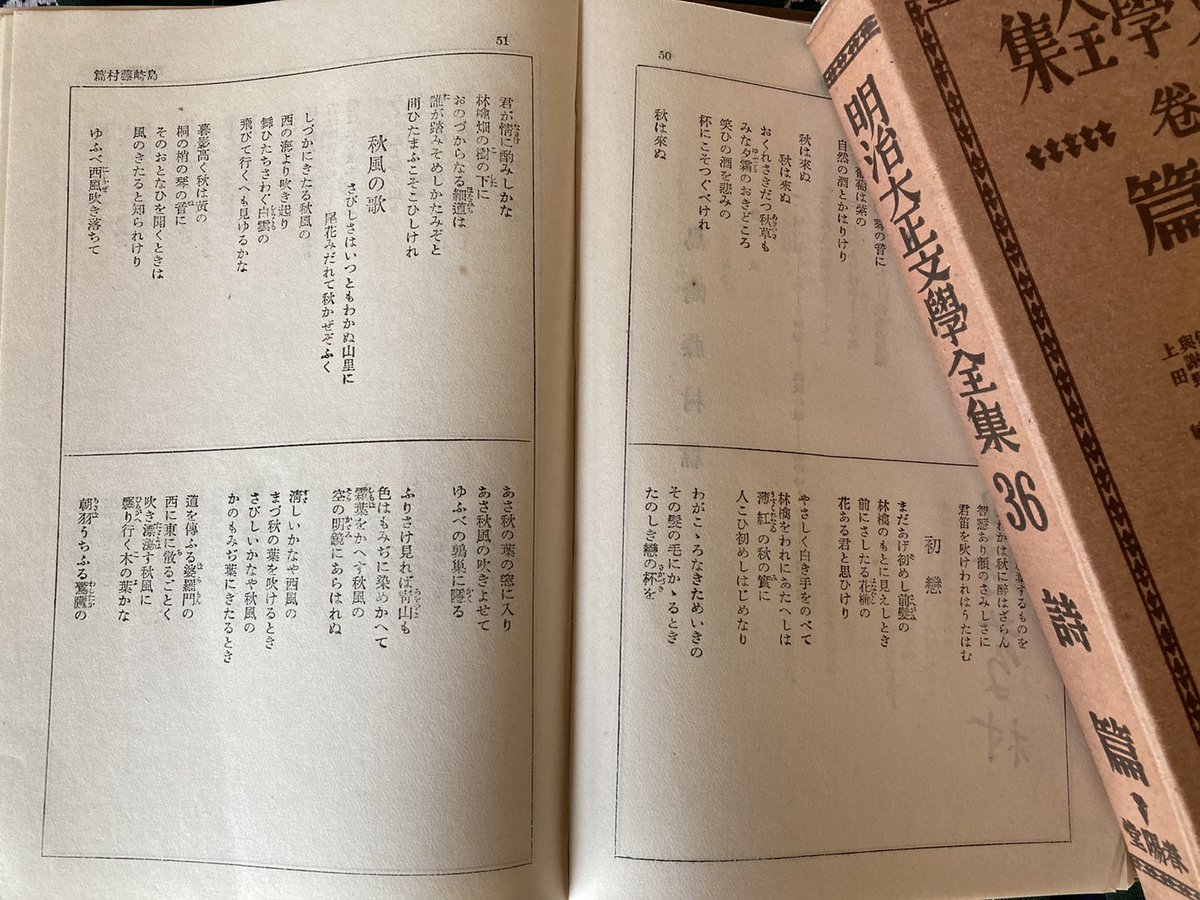 50
琴の音に
葡萄は紫の
自然の酒とかはりけり
秋は來ぬ
秋は來ぬ
おくれさきだつ秋草も
みな夕霜のおきどころ
笑ひの酒を悲みの
杯にこそつぐべけれ
秋は來ぬ
葉するものを
れかは秋に醉はざらん
智慧あり顔のさみしさに
君笛を吹けわれはうたはむ
初戀
まだあげ初めし前髮の
林檎のもとに見えしとき
前にさしたる花櫛の
花ある君と思ひけり
やさしく白き手をのべて
林檎をわれにあたへしは
薄紅の秋の實に
人こひ初めしはじめなり
わがこゝろなきためいきの
その髮の毛にかゝるとき
たのしき戀の杯を
51
島崎藤村篇
君が情に酌みしかな
林檎畑の樹の下に
おのづからなる細道は
誰が踏みそめしかたみぞと
問ひたまふこそこひしけれ
秋風の歌
さびしさはいつともわかぬ山里に
尾花みだれて秋かぜぞふく
しづかにきたる秋風の
西の海より吹き起り
舞ひたちさわぐ白雲の
飛びて行くへも見ゆるかな
暮影高く秋は黄の
桐の梢の琴の音に
そのおとなひを聞くときは
風のきたると知られけり
ゆふべ西風吹き落ちて
あさ秋の葉の窓に入り
あさ秋風の吹きよせて
ゆふべの鶉巢に隱る
ふりさけ見れば青山も
色はもみぢに染めかへて
霜葉をかへす秋風の
空の明鏡にあらはれぬ
清しいかなや西風の
まづ秋の葉を吹けるとき
さびしいかなや秋風の
かのもみぢ葉にきたるとき
道を傳ふる婆羅門の
西に東に散るごとく
吹き漂蕩す秋風に
飄り行く木の葉かな
朝羽うちふる鷲鷹の
明治大正文學全集 36 詩篇
春陽堂
卷
篇
上田